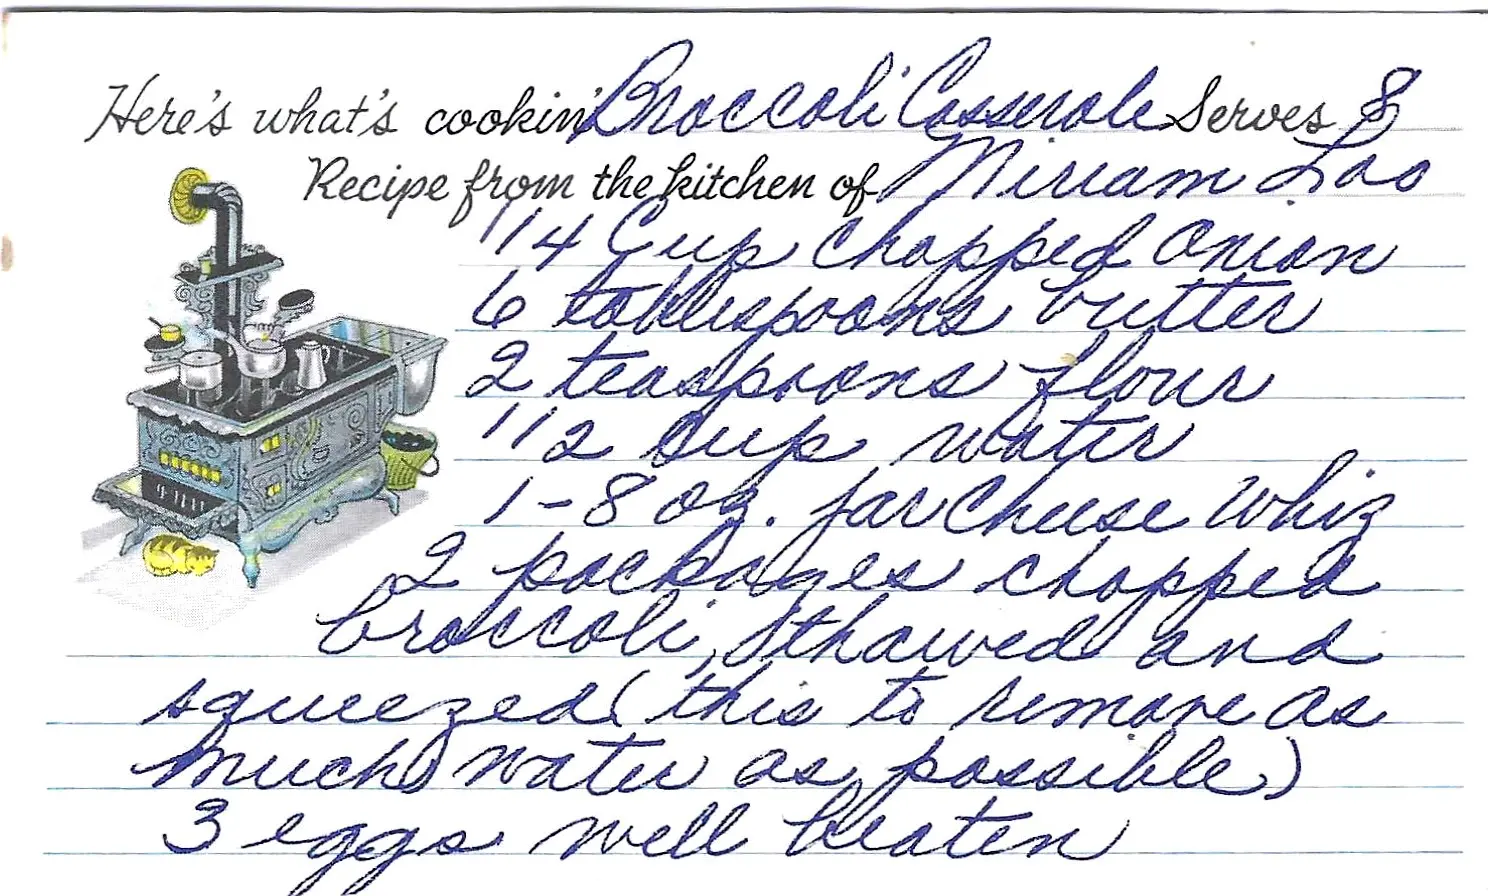 Here's what's cookin' Broccoli Casserole Serves 8
Recipe from the kitchen of Miriam Loo
1/4 Cup chopped onion
6 tablespoons butter
2 teaspoons flour
1/2 Cup water
1-8 oz. jar Cheese Whiz
2 packages chopped
broccoli, thawed and
squeezed (this to remove as
much water as possible)
3 eggs well beaten